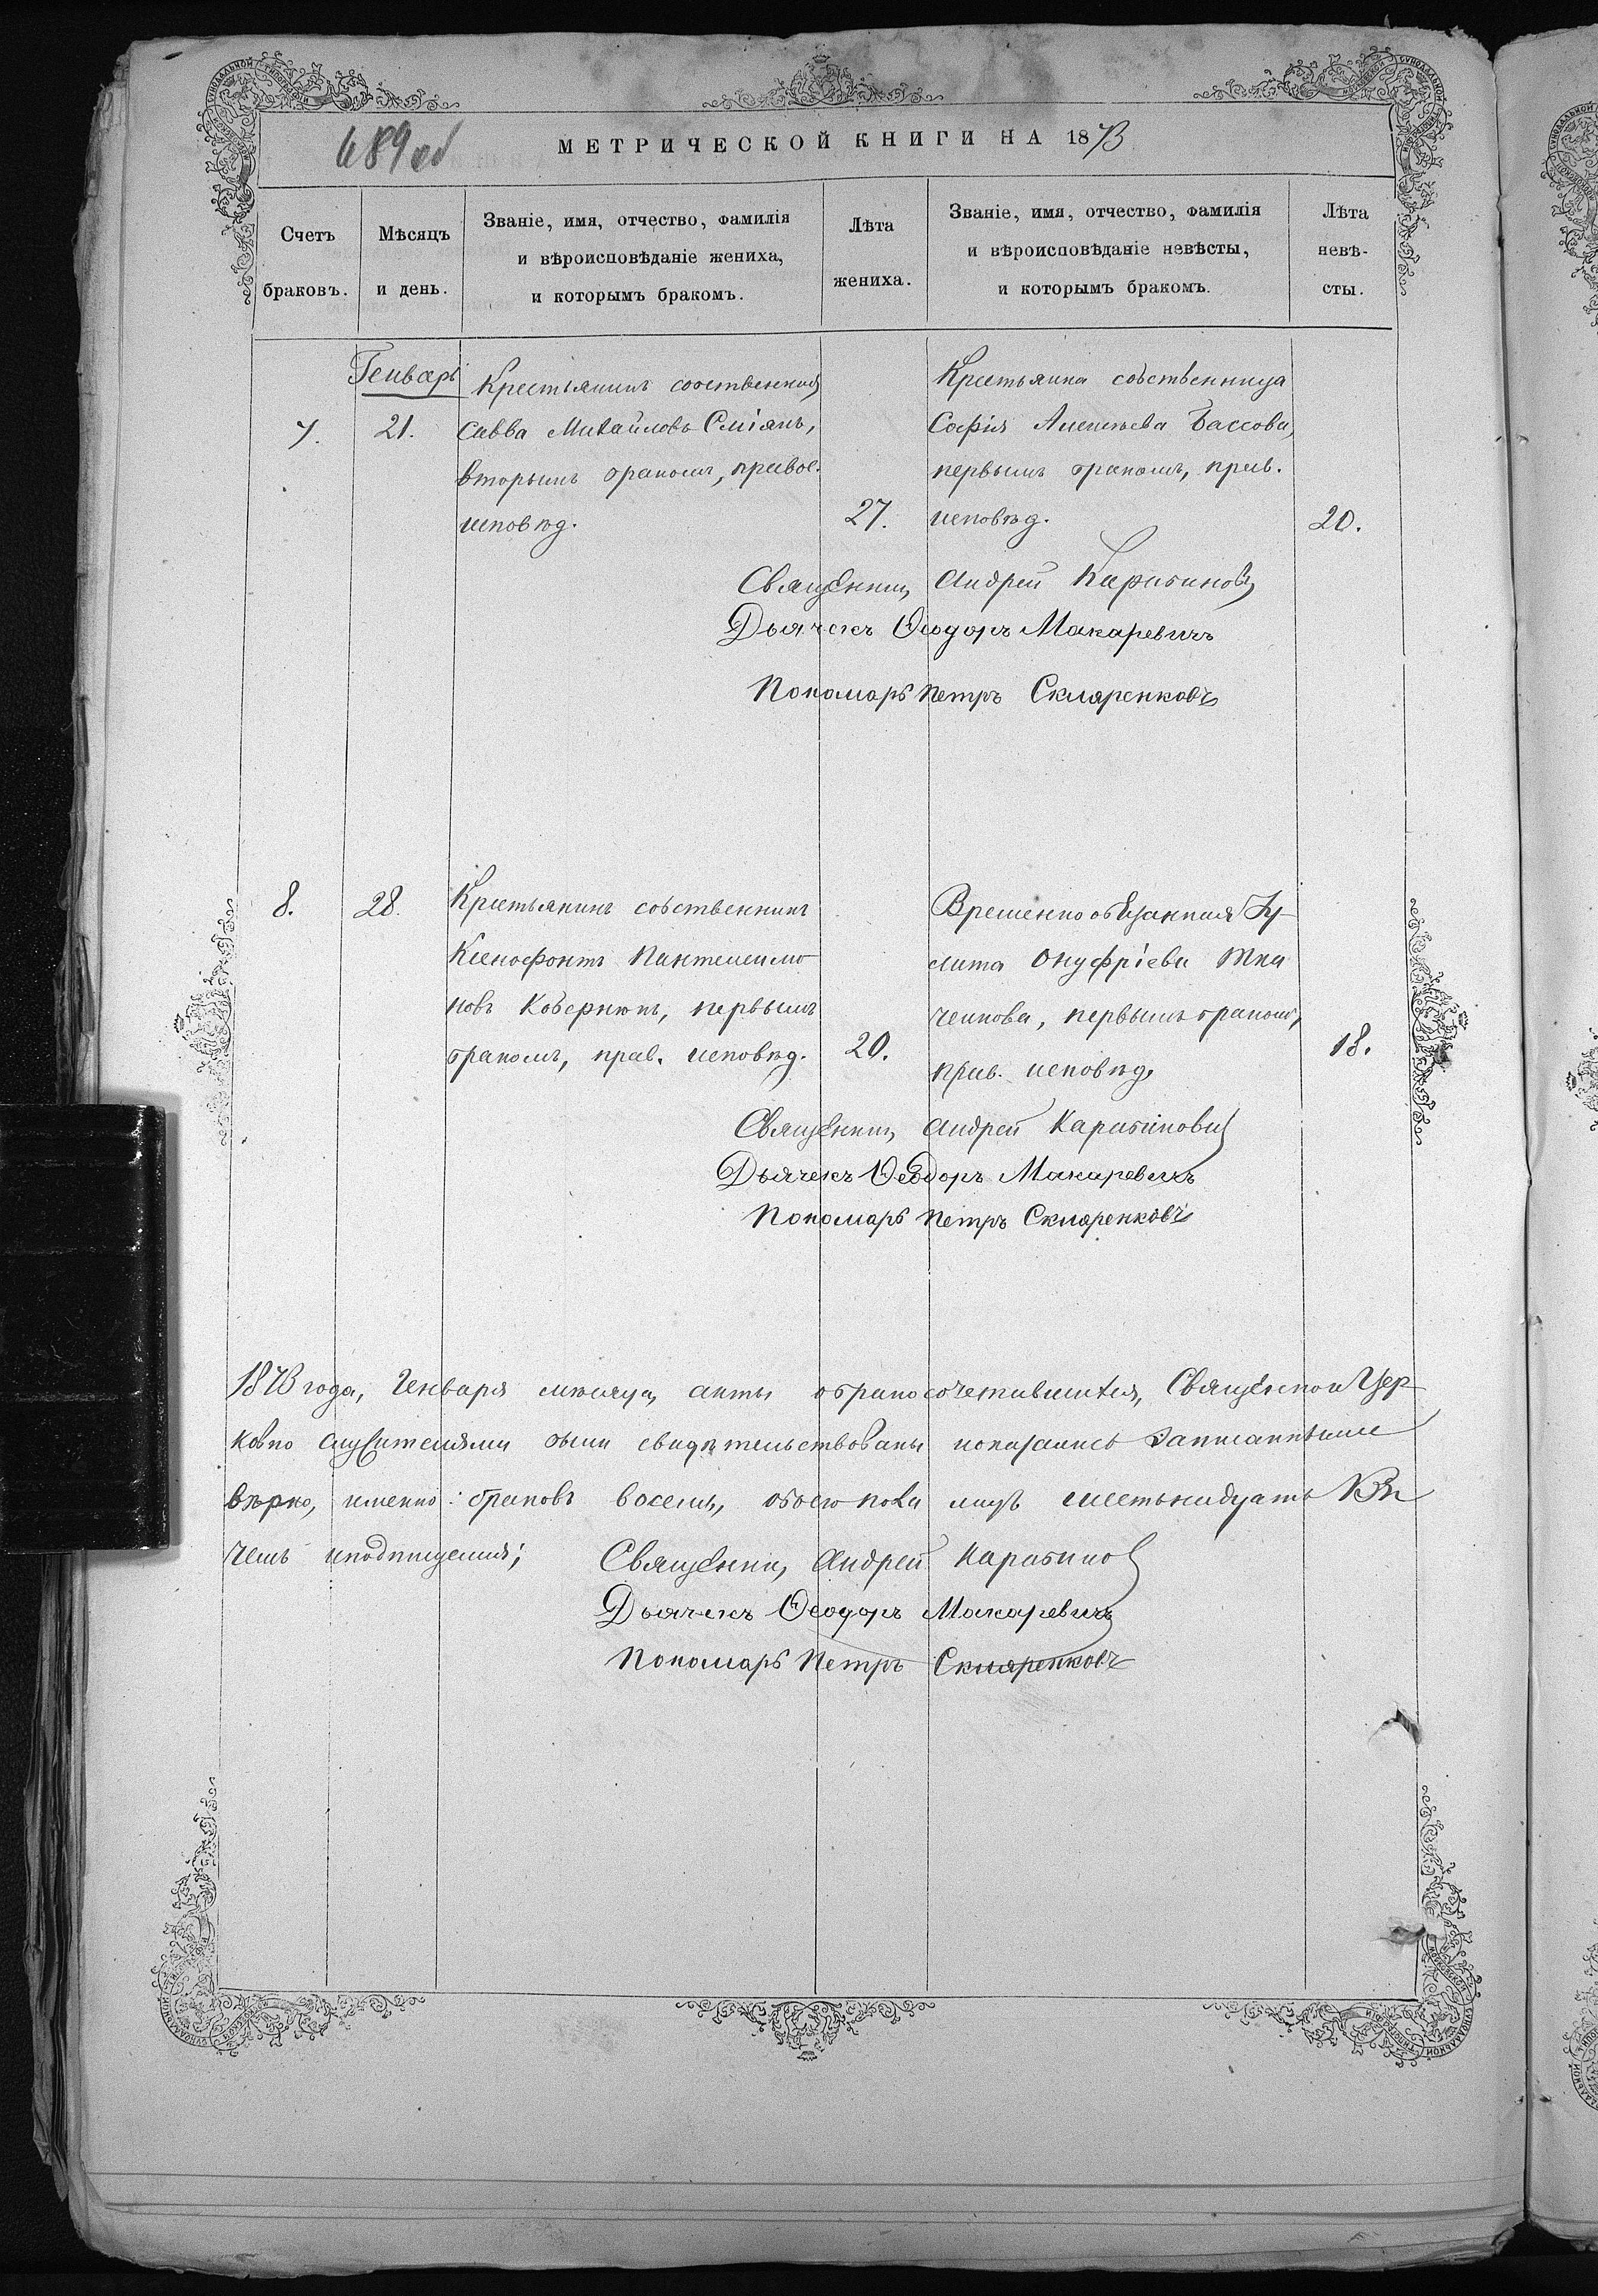 489 об
МЕТРИЧЕСКОЙ КНИГИ НА 1873
Счетъ браковъ.
Мѣсяцъ и день.
Званіе, имя, отчество, фамилія
и вѣроисповѣданіе жениха,
и которымъ бракомъ.
Лѣта
жениха.
Званіе, имя, отчество, фамилія
и вѣроисповѣданіе невѣсты,
и которымъ бракомъ.
Лѣта
невѣ-
сты.
Генварь
7.
21.
Крестьянинъ собственникъ
Савва Михайловъ Сміянъ,
вторымъ бракомъ, правос.
исповѣд.
27.
Крестьянка собственница
Софія Алексѣева Бассова,
первымъ бракомъ, прав.
исповѣд.
20.
Священникъ Андрей
Дьячекъ Ѳеодоръ Макаревичъ
Пономарь Петръ Скляренковъ
8.
28.
Крестьянинъ собственникъ
Ксенофонтъ Пантелеимо
новъ Кобернюкъ, первымъ
бракомъ, прав. исповѣд.
20.
Временно обязанная Іу-
лита Онуфріева Тка
ченкова, первымъ бракомъ,
прав. исповѣд.
18.
Священникъ Андрей
Дьячекъ Ѳеодоръ Макаревичъ
Пономарь Петръ Скляренковъ
1873 года, Генваря мѣсяца, акты о бракосочетавшихся, Священно и Цер
ковно служителями были свидѣтельствованы показались записанными
вѣрно, именно: браковъ восемь, обоего пола лицъ шестьнадцать Въ
чемъ и подпишемся;
Священникъ Андрей
Дьячекъ Ѳеодоръ Макаревичъ
Пономарь Петръ Скляренковъ